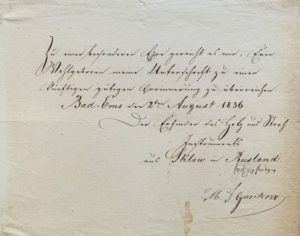 Zu einer besonderen Ehre gereicht es mir, Euer
Wohlgeboren meine Unterschrift zu einer
künftigen gütigen Erinnerung zu überreichen
Bad-Ems den 2ten August 1836.
Der Erfinder des Holz und Stroh
Instruments
aus Sklow in Rusland
M. J. Gusikow